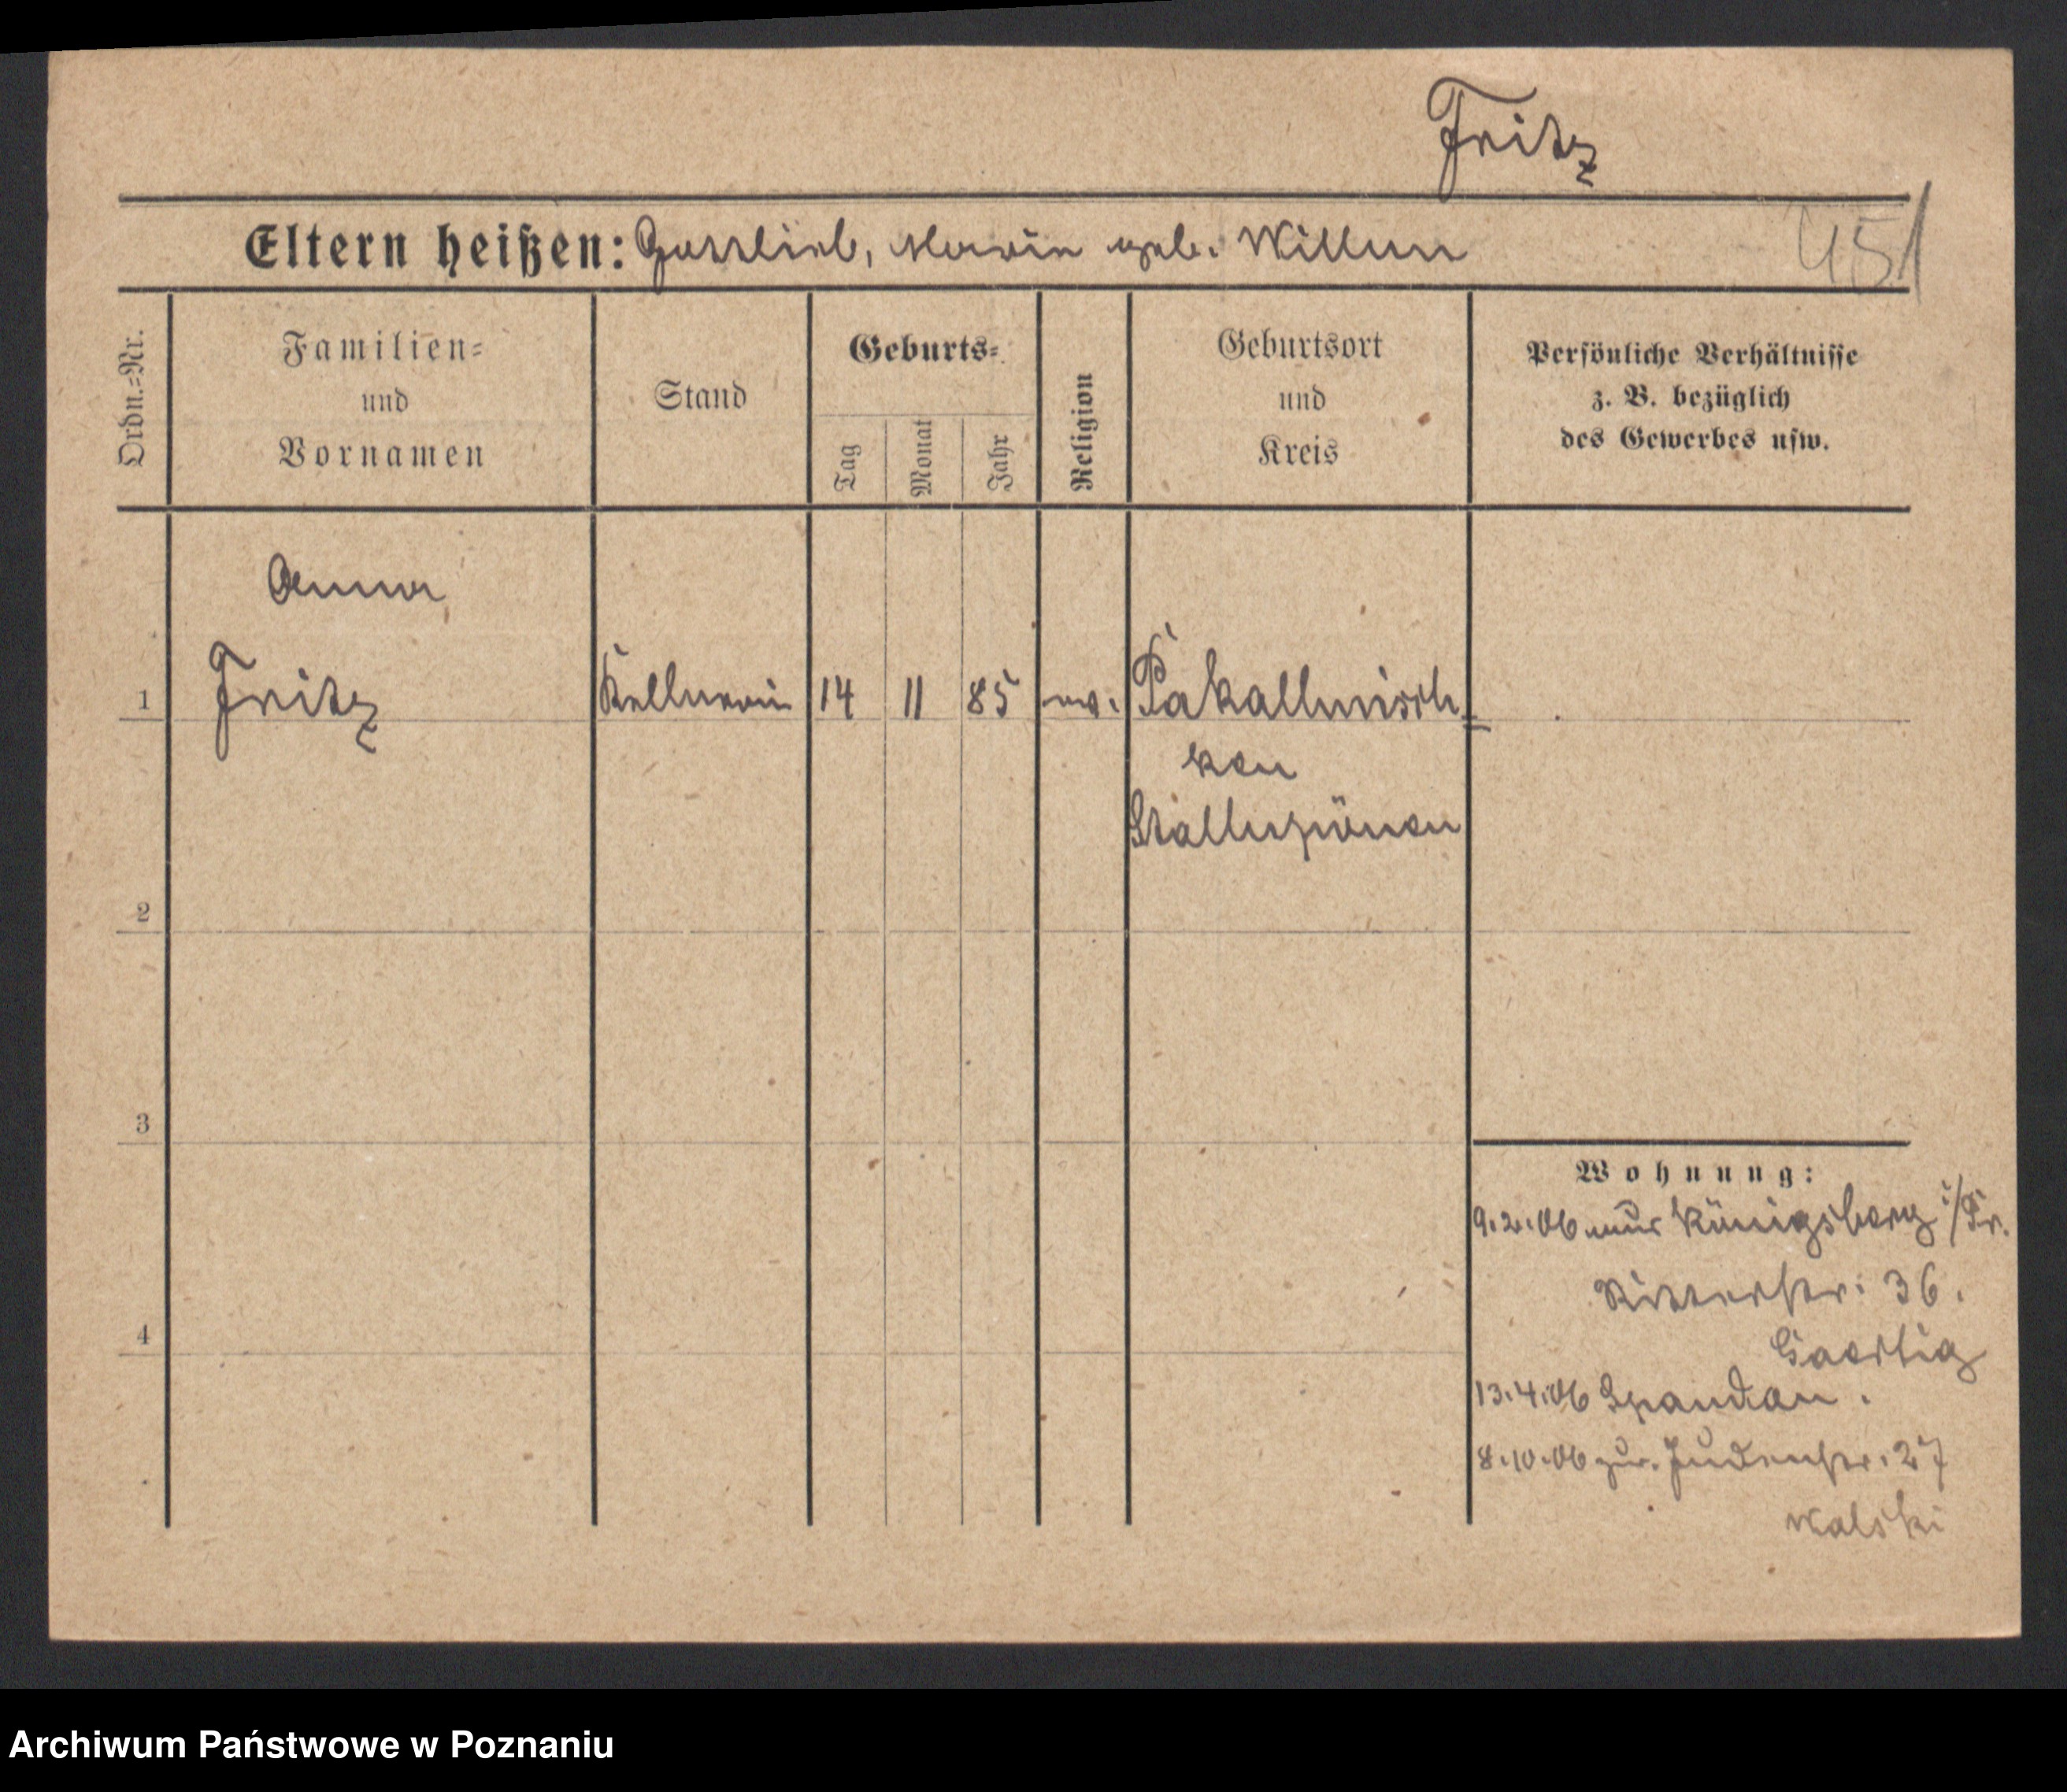 Fritz
Eltern heißen: Gottlieb, Marie geb. Willun
451
Ordn.=Nr.
Familien=
und
Vornamen
Stand
Geburts=
Tag
Monat
Jahr
Religion
Geburtsort
und
Kreis
Persönliche Verhältnisse
z. B. bezüglich
des Gewerbes usw.
Anna
1 Fritz Kellnerin 14 11 85 ev. Pakallnisch=
ken
Stallupönen
2
3
4
Wohnung:
9.2.06 aus Königsberg i/Pr.
Ritterstr. 36.
13.4.06 Spandau.
8.10.06 zur. Judenstr. 27
Walski
Archiwum Państwowe w Poznaniu